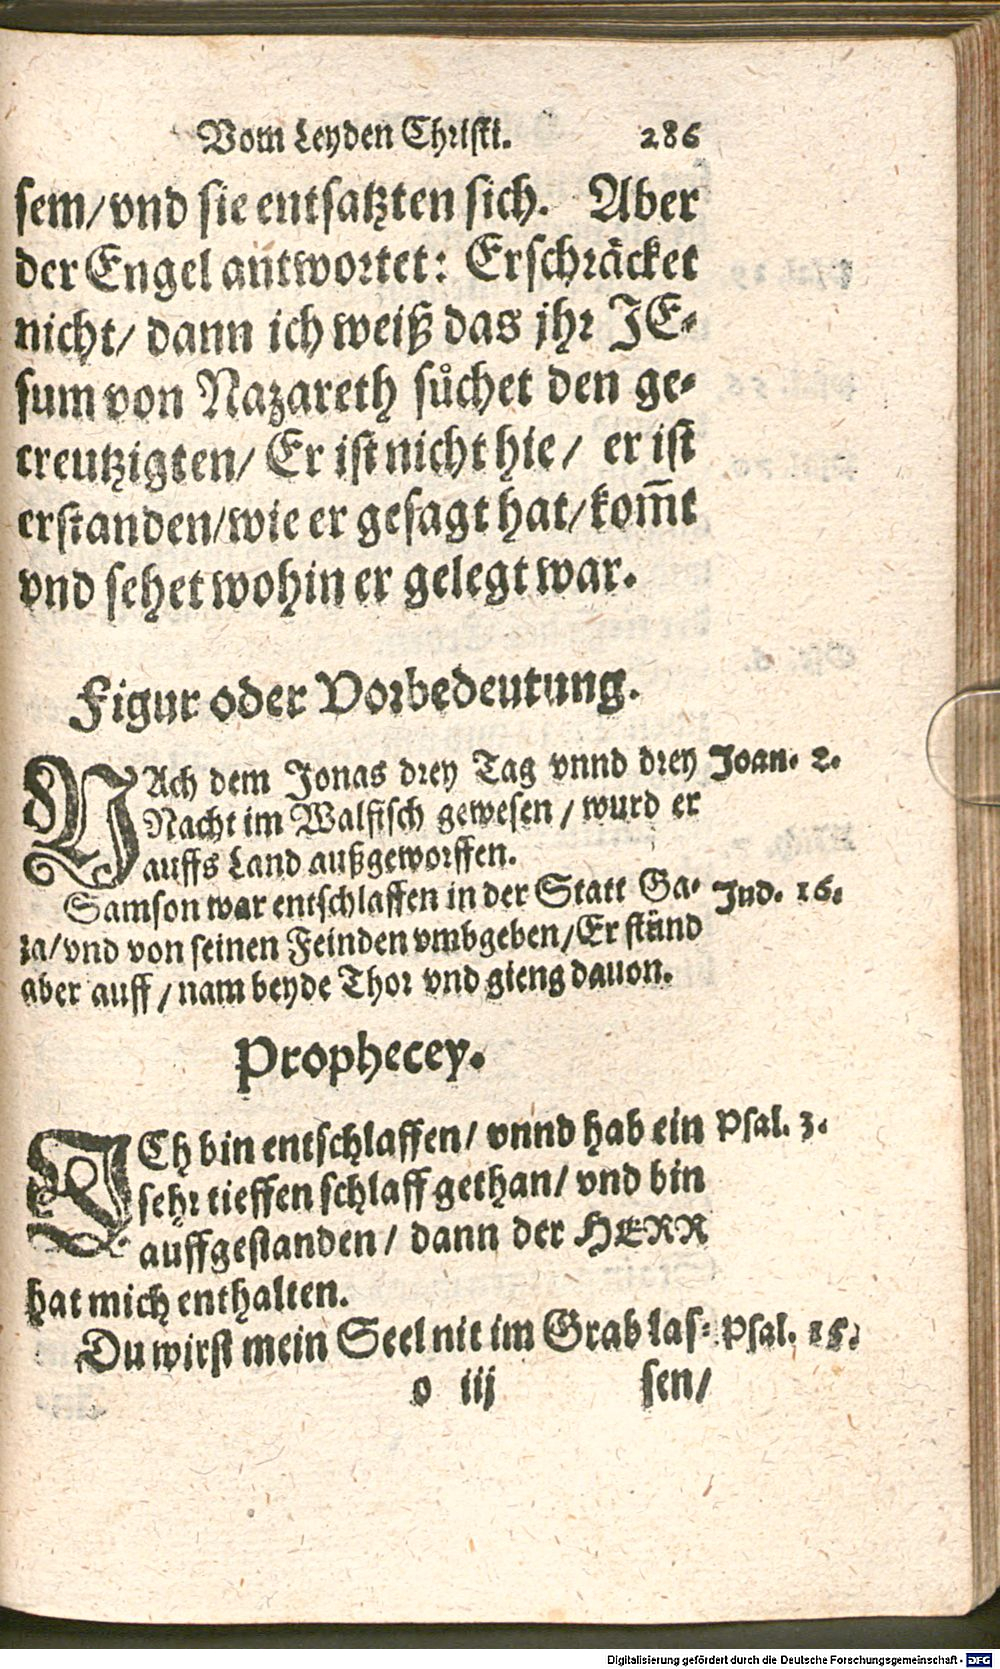 Vom Leyden Christi. 286
sem/vnd sie entsatzten sich. Aber
der Engel antwortet: Erschräcket
nicht/ dann ich weiß das jhr JE-
sum von Nazareth sůchet den ge-
creutzigten/ Er ist nicht hie/ er ist
erstanden/wie er gesagt hat/kom̃t
vnd sehet wohin er gelegt war.
Figur oder Vorbedeutung.
NAch dem Jonas drey Tag vnnd drey Joan. 2.
Nacht im Walfisch gewesen / wurd er
auffs Land außgeworffen.
Samson war entschlaffen in der Statt Ga- Jud. 16.
za/vnd von seinen Feinden vmbgeben/Er stůnd
aber auff / nam beyde Thor vnd gieng dauon.
Prophecey.
ICh bin entschlaffen/ vnnd hab ein Psal. 3.
sehr tieffen schlaff gethan/ vnd bin
auffgestanden/ dann der HERR
hat mich enthalten.
Du wirst mein Seel nit im Grab las- Psal. 15.
o iij sen/
Digitalisierung gefördert durch die Deutsche Forschungsgemeinschaft - DFG